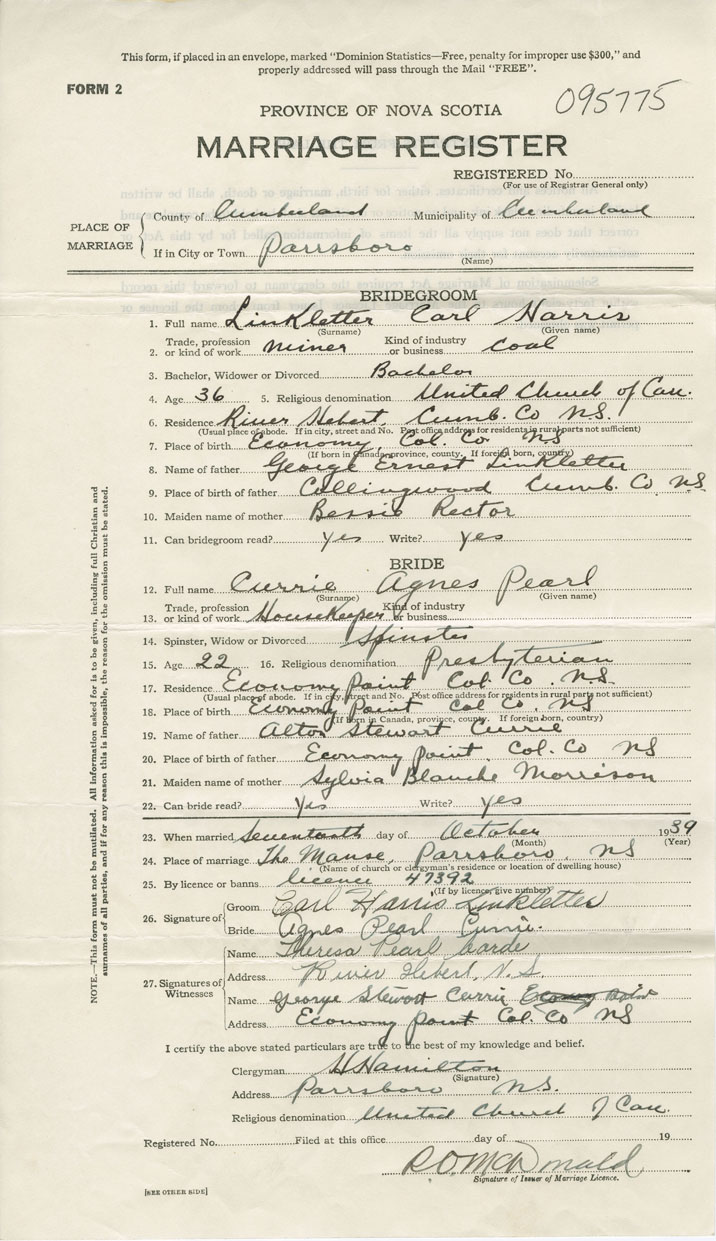 This form, if placed in an envelope, marked "Dominion Statistics—Free, penalty for improper use $300," and
properly addressed will pass through the Mail "FREE".
FORM 2
095775
PROVINCE OF NOVA SCOTIA
MARRIAGE REGISTER
REGISTERED No.
(For use of Registrar General only)
PLACE OF MARRIAGE
County of Cumberland Municipality of Cumberland
If in City or Town Parrsboro
(Name)
BRIDEGROOM
1. Full name Linkletter Carl Harris
(Surname) (Given name)
2. Trade, profession or kind of work miner Kind of industry or business coal
3. Bachelor, Widower or Divorced Bachelor
4. Age 36 5. Religious denomination United Church of Can.
6. Residence River Hebert, Cumb. Co N.S.
(Usual place of abode. If in city, street and No. Post office address for residents in rural parts not sufficient)
7. Place of birth Economy, Col. Co NS
(If born in Canada, province, county. If foreign born, country)
8. Name of father George Ernest Linkletter
9. Place of birth of father Collingwood Cumb. Co NS
10. Maiden name of mother Bessie Rector
11. Can bridegroom read? yes Write? yes
BRIDE
12. Full name Currie Agnes Pearl
(Surname) (Given name)
13. Trade, profession or kind of work Housekeeper Kind of industry or business
14. Spinster, Widow or Divorced Spinster
15. Age 22 16. Religious denomination Presbyterian
17. Residence Economy Point Col. Co. N.S.
(Usual place of abode. If in city, street and No. Post office address for residents in rural parts not sufficient)
18. Place of birth Economy Point Col Co NS
(If born in Canada, province, county. If foreign born, country)
19. Name of father Alton Stewart Currie
20. Place of birth of father Economy point, Col. Co NS
21. Maiden name of mother Sylvia Blanche Morrison
22. Can bride read? Yes Write? yes
23. When married Seventeenth day of October 1939
(Month) (Year)
24. Place of marriage The Manse, Parrsboro, NS
(Name of church or clergyman's residence or location of dwelling house)
25. By licence or banns licence 47392
(If by licence, give number)
26. Signature of
Groom Carl Harris Linkletter
Bride Agnes Pearl Currie.
27. Signatures of Witnesses
Name Theresa Pearl
Address River Hebert, N.S.
Name George Stewart Currie
Address Economy point Col. Co NS
I certify the above stated particulars are true to the best of my knowledge and belief.
Clergyman H Hamilton
(Signature)
Address Parrsboro N.S.
Religious denomination United Church of Can.
Registered No. Filed at this office day of 19
R O McDonald
Signature of Issuer of Marriage Licence.
[SEE OTHER SIDE]
NOTE.—This form must not be mutilated. All information asked for is to be given, including full Christian and
surnames of all parties, and if for any reason this is impossible, the reason for the omission must be stated.